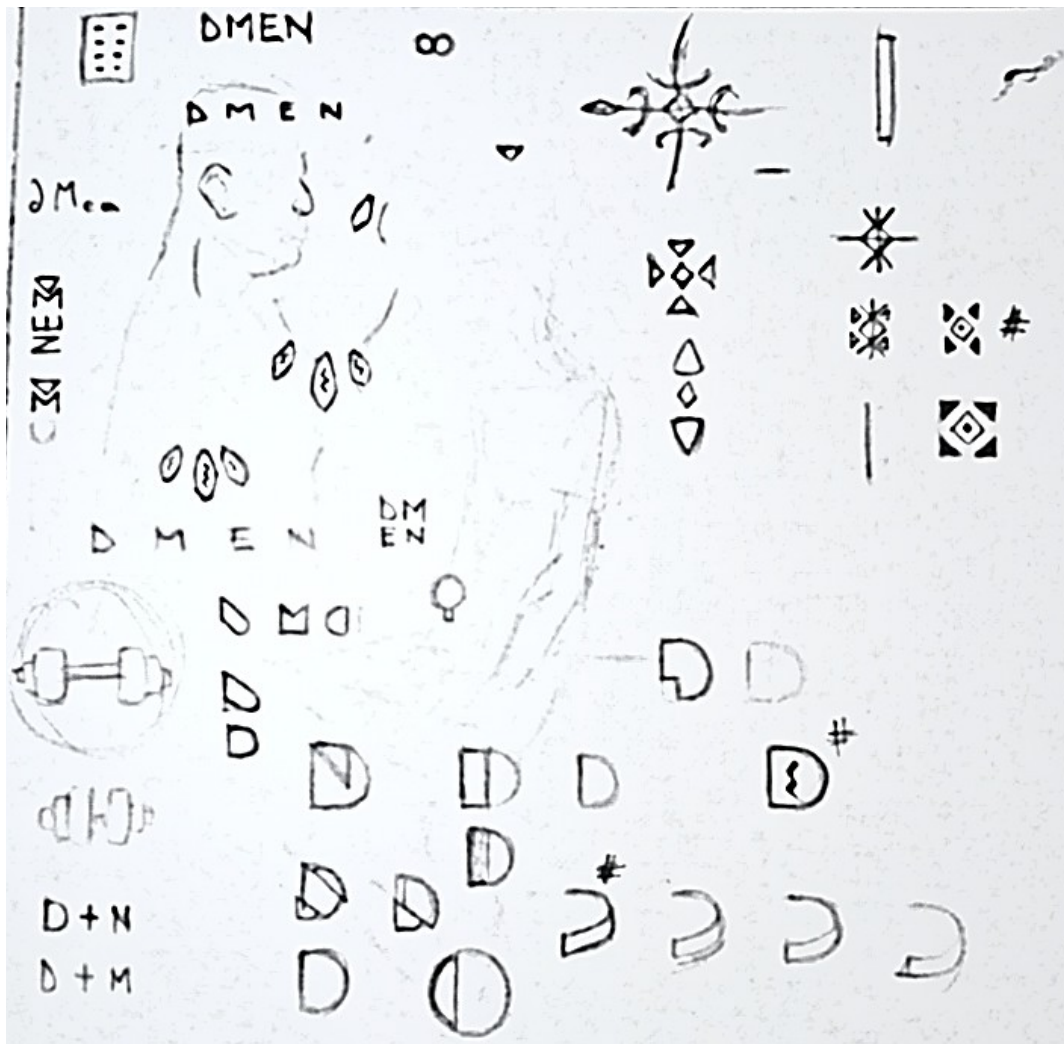 DMEN
D M E N
∂Men
NE
D M E N
DM
EN
D
D
#
#
D
#
D + N
D + M
D